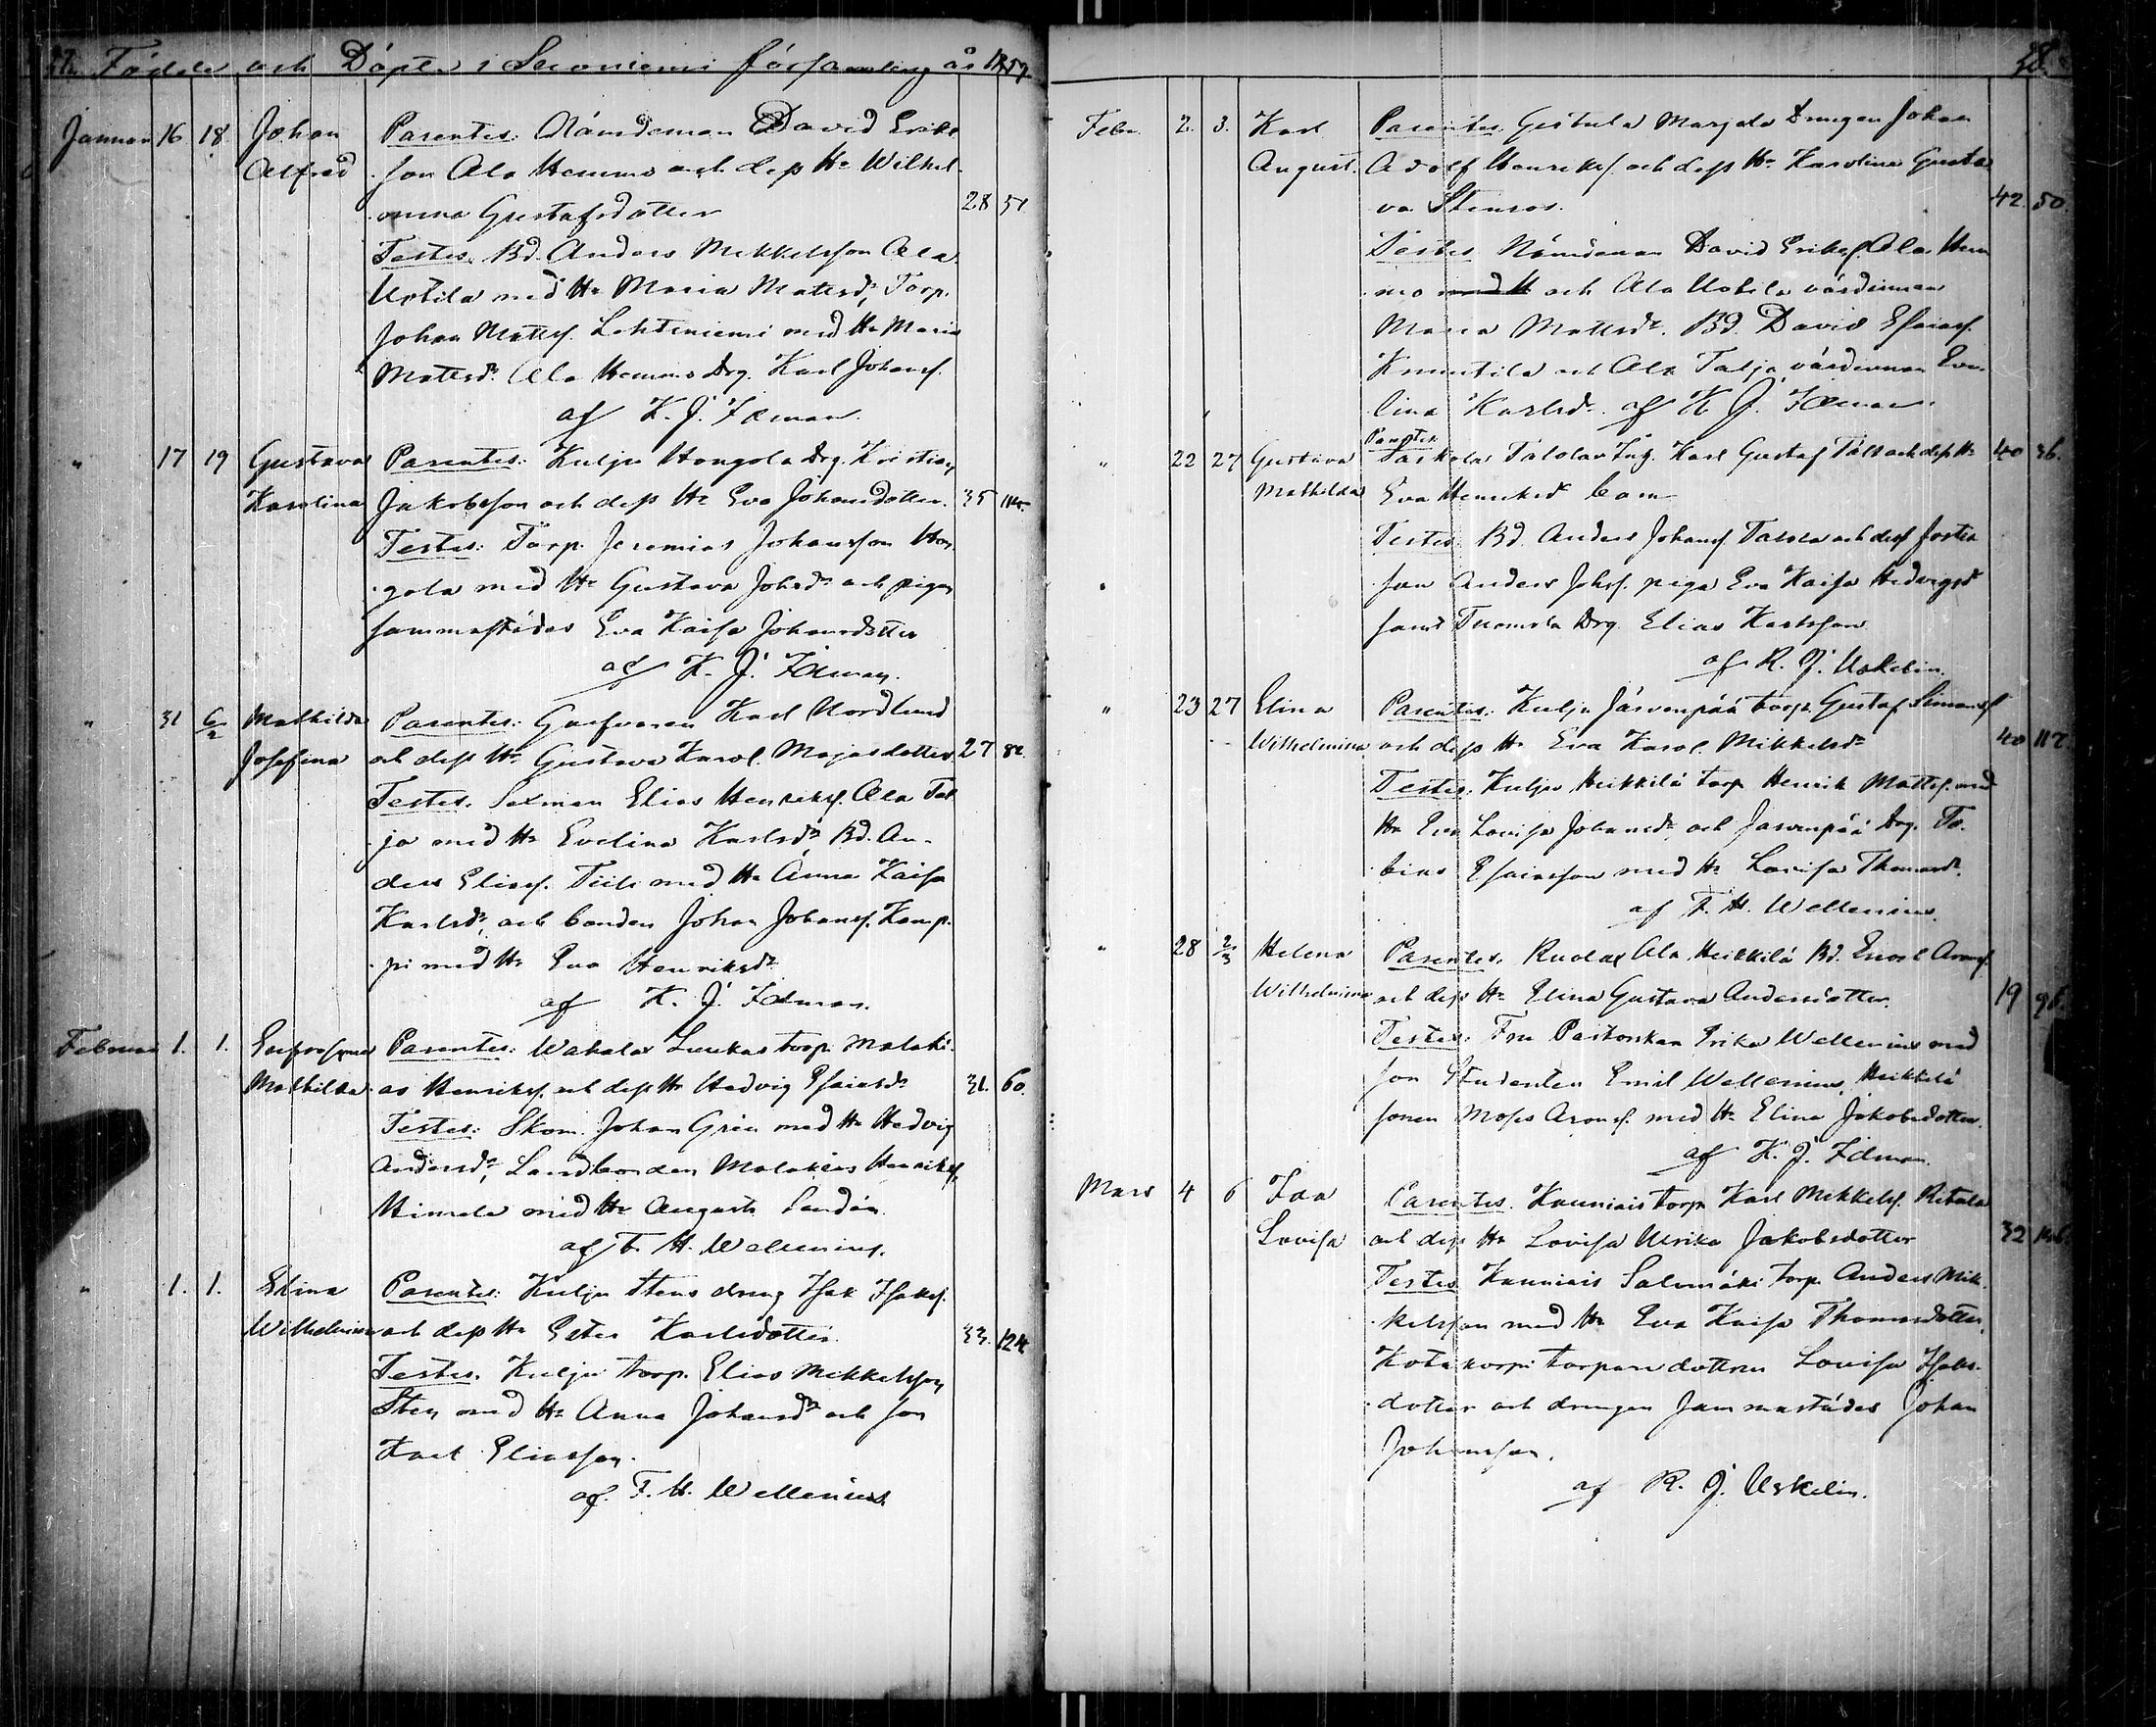 Födde och Döpte i Suoniemi församling år 1859
Januari 16 18. Johan Parentes: Nämdeman David Eriks
Alfred son Ala Hemmo och dess Hu Wilhel
mina Gustafsdotter 28 51.
Testes. Bd. Anders Mikkelsson Ala
Uotila med Hu Maria Mattsdr, Torp.
Johan Mattss. Lehtiniemi med Hu Maria
Mattsdr. Ala Hemmo Drg. Karl Johanss.
af K. J. Idman.
" 17 19 Gustava Parentes: Kulju Hongola Drg. Kristian
Karolina Jakobsson och dess Hu Eva Johansdotter. 35
Testes: Torp. Jeremias Johansson Hon
gola med Hu Gustava Johsdr och pigan
sammastädes Eva Kaisa Johansdotter
af K. J. Idman.
" 31 6/2 Mathilda Parentes: Garfvaren Karl Nordlund
Josefina och dess Hu Gustava Karol. Majasdotter 27 82.
Testes. Sexman Elias Henrikss. Ala Tal
ja med Hu Evelina Karlsdr, Bd. An-
ders Eliass. Tiili med Hu Anna Kaisa
Karlsdr, och bonden Johan Johanss. Kamp
pi med Hu Eva Henriksdr
af K. J. Idman.
Februari 1. 1. Eufrosyna Parentes: Wahalax Luukas torp. Malaki
Mathilda as Henrikss. och dess Hu Hedvig Esaiasdr 31. 60.
Testes: Skom. Johan Grén med Hu Hedvig
Andersdr, Landbonden Malakias Henrikss.
Himala med Hu Augusta Sandén.
af F. H. Wellenius.
" 1. 1. Elina Parentes: Kulju Stens dräng Isak Isakss.
Wilhelmina och dess Hu Ester Karlsdotter. 33. 124
Testes. Kulju torp. Elias Mikkelsson
Sten med Hu Anna Johansdr och son
Karl Eliasson.
af. F. H. Wellenius.
Febr. 2. 3. Karl Parentes. Marjala Drängen Johan
August. Adolf Henrikss. och dess Hu Karolina Gusta
va Stenros. 42. 50.
Testes Nämdeman David Erikss. Ala Hem
mo med H och Ala Uotila värdinnan
Maria Mattsdr. Bd. David Esaiass.
Knuutila och Ala Talja värdinnan Eve-
lina Karlsdr. af K. J. Idman.
Parentes
" 22 27 Gustava Karl Gustaf och dess Hu 40 36.
Mathilda Eva Henriksdr
Testes. Bd. Anders Johanss. och dess foster
son Anders Johss. piga Eva Kaisa Hedvigsdr
samt Tuomola Drg. Elias Karlsson
af R. J. Uskelin.
" 23 27 Elina Parentes. Kulju Järvenpää torp. Gustaf Simonss
Wilhelmina och dess Hu Eva Karol. Mikkelsdr 40 117.
Testes. Kulju Heikkilä torp Henrik Mattss. med
Hu Eva Lovisa Johansdr, och Järvenpää Drg. To-
bias Esaiasson med Hu Lovisa Thomasdr.
af F. H. Wellenius.
" 28 2/3 Helena Parentes. Kuolax Ala Heikkilä Bd. Enok Aronss.
Wilhelmina och dess Hu Elina Gustava Andersdotter. 19 96.
Testes. Fru Pastorskan Erika Wellenius med
son Studenten Emil Wellenius, Heikkilä
sonen Moses Aronss. med Hu Elina Jakobsdotter.
af K. J. Idman.
Mars 4 6 Ida Parentes. Kauniais torp. Karl Mikkelss. Ritala
Lovisa och dess Hu Lovisa Ulrika Jakobsdotter 32
Testes Kauniais Salomäki torp. Anders Mik
kelsson med Hu Eva Kaisa Thomasdotter,
Kotakorpi torparedottren Lovisa Isaks-
dotter och drängen sammastädes Johan
Johansson.
af R. J. Uskelin.